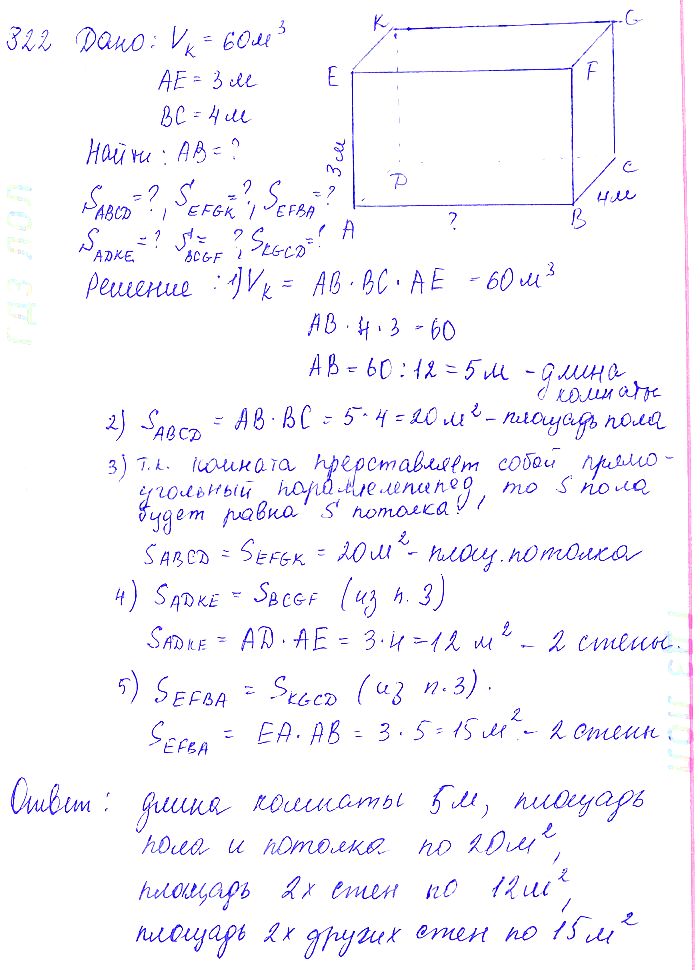 322 Дано: Vк = 60м³
AE = 3м
BC = 4м
Найти: AB = ?
S ABCD = ?, S EFGK = ?, S EFBA = ?
S ADKE = ? S BCGF = ?, S KGCD = ?
K G
E F
3м
D C
4м
A ? B
Решение: 1) Vк = AB · BC · AE = 60м³
AB · 4 · 3 = 60
AB = 60 : 12 = 5м - длина
комнаты
2) S ABCD = AB · BC = 5 · 4 = 20м² - площадь пола
3) т.к. комната представляет собой прямо-
угольный параллелепипед, то S пола
будет равна S потолка.
S ABCD = S EFGK = 20м² - площ. потолка
4) S ADKE = S BCGF (из п. 3)
S ADKE = AD · AE = 3 · 4 = 12 м² - 2 стены.
5) S EFBA = S KGCD (из п. 3).
S EFBA = EA · AB = 3 · 5 = 15м² - 2 стен.
Ответ: длина комнаты 5м, площадь
пола и потолка по 20м²,
площадь 2х стен по 12м²,
площадь 2х других стен по 15м²